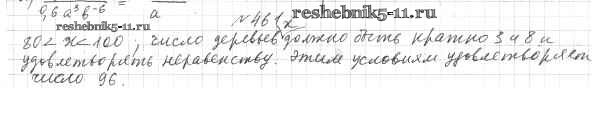 0,6 a³ b⁻⁶ = a
№461 x
reshebnik5-11.ru
reshebnik5-11.ru
80 < x < 100 ; число деревьев должно быть кратно 3 и 8 и
удовлетворять неравенству. Этим условиям удовлетворяет
число 96.